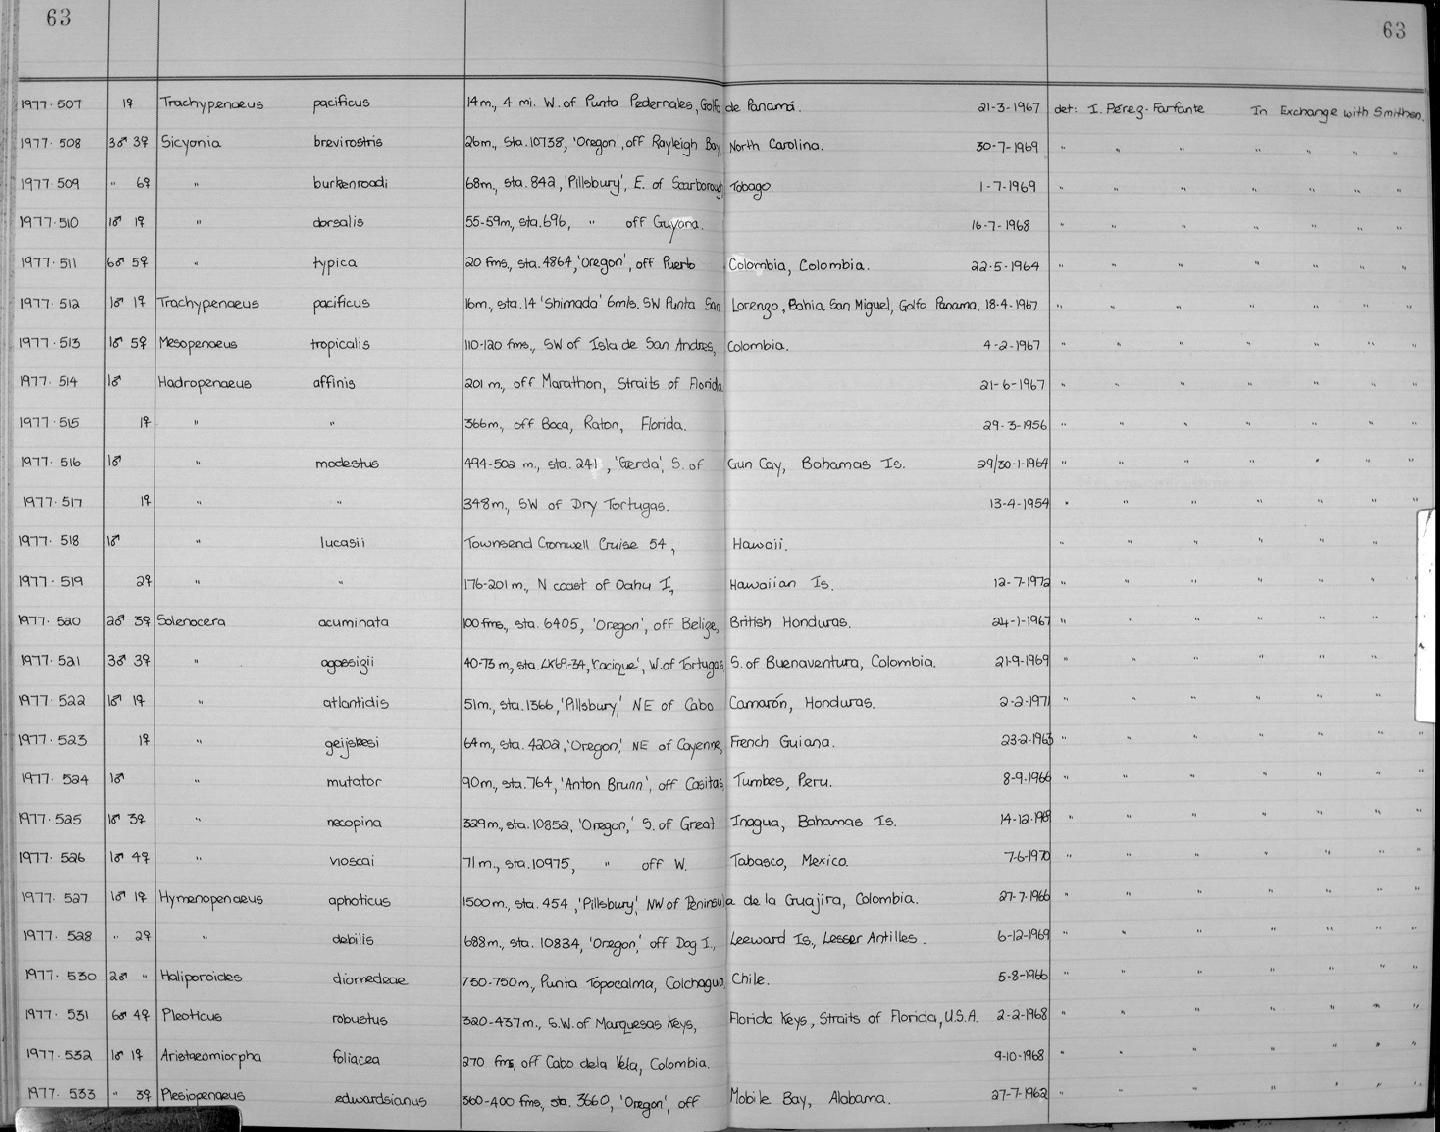 63 63
1977.507 1♀ Trachypenaeus pacificus 14m., 4 mi. W. of Punta Pedernales, Golfo de Panamá. 21-3-1967 det: I. Pérez-Farfante In Exchange with Smithsn.
1977.508 3♂ 3♀ Sicyonia brevirostris 26m., Sta. 10738, 'Oregon', off Rayleigh Bay North Carolina. 30-7-1969 " " " " " " "
1977.509 " 6♀ " burkenroadi 68m., sta. 842, 'Pillsbury', E. of Scarborough Tobago 1-7-1969 " " " " " " "
1977.510 1♂ 1♀ " dorsalis 55-59m., sta. 696, " off Guyana. 16-7-1968 " " " " " " "
1977.511 6♂ 5♀ " typica 20 fms., sta. 4864, 'Oregon', off Puerto Colombia, Colombia. 22-5-1964 " " " " " " "
1977.512 1♂ 1♀ Trachypenaeus pacificus 16m., sta. 14 'Shimada' 6mls. SW Punta San Lorenzo, Bahia San Miguel, Golfo Panama. 18-4-1967 " " " " " " "
1977.513 1♂ 5♀ Mesopenaeus tropicalis 110-120 fms., SW of Isla de San Andres, Colombia. 4-2-1967 " " " " " " "
1977.514 1♂ Hadropenaeus affinis 201 m., off Marathon, Straits of Florida 21-6-1967 " " " " " " "
1977.515 1♀ " " 366m., off Boca, Raton, Florida. 29-3-1956 " " " " " " "
1977.516 1♂ " modestus 494-502 m., sta. 241, 'Gerda', S. of Gun Cay, Bahamas Is. 29/30-1-1964 " " " " " " "
1977.517 1♀ " " 348m., SW of Dry Tortugas. 13-4-1954 " " " " " " "
1977.518 1♂ " lucasii Townsend Cromwell Cruise 54, Hawaii. " " " " " "
1977.519 2♀ " " 176-201 m., N coast of Oahu I., Hawaiian Is. 12-7-1972 " " " " " " "
1977.520 2♂ 3♀ Solenocera acuminata 100 fms., sta. 6405, 'Oregon', off Belize, British Honduras. 24-1-1967 " " " " " " "
1977.521 3♂ 3♀ " agassizii 40-73 m., sta. 'Cacique', W. of Tortugas S. of Buenaventura, Colombia. 21-9-1969 " " " " " " "
1977.522 1♂ 1♀ " atlantidis 51m., sta. 1366, 'Pillsbury' NE of Cabo Camarón, Honduras. 2-2-1971 " " " " " " "
1977.523 1♀ " geijskesi 64m., sta. 4202, 'Oregon', NE of Cayenne, French Guiana. 23-2-1963 " " " " " " "
1977.524 1♂ " mutator 90m., sta. 764, 'Anton Brunn', off Casitas, Tumbes, Peru. 8-9-1966 " " " " " " "
1977.525 1♂ 3♀ " necopina 329m., sta. 10852, 'Oregon,' S. of Great Inagua, Bahamas Is. 14-12- " " " " " " "
1977.526 1♂ 4♀ " vioscai 71m., sta. 10975, " off W. Tabasco, Mexico. 7-6-1970 " " " " " " "
1977.527 1♂ 1♀ Hymenopenaeus aphoticus 1500m., sta. 454, 'Pillsbury', NW of Peninsula de la Guajira, Colombia. 27-7-1966 " " " " " " "
1977.528 " 2♀ " debilis 688m., sta. 10834, 'Oregon,' off Dog I., Leeward Is., Lesser Antilles. 6-12-1969 " " " " " " "
1977.530 2♂ " Haliporoides diomedeae 750-750m., Punta Topocalma, Colchagua, Chile. 5-8-1966 " " " " " " "
1977.531 6♂ 4♀ Pleoticus robustus 320-437m., S.W. of Marquesas Keys, Florida Keys, Straits of Florida, U.S.A. 2-2-1968 " " " " " " "
1977.532 1♂ 1♀ Aristaeomorpha foliacea 270 fms. off Cabo dela Vela, Colombia. 9-10-1968 " " " " " " "
1977.533 " 3♀ Plesiopenaeus edwardsianus 360-400 fms., sta. 3660, 'Oregon', off Mobile Bay, Alabama. 27-7-1962 " " " " " " "